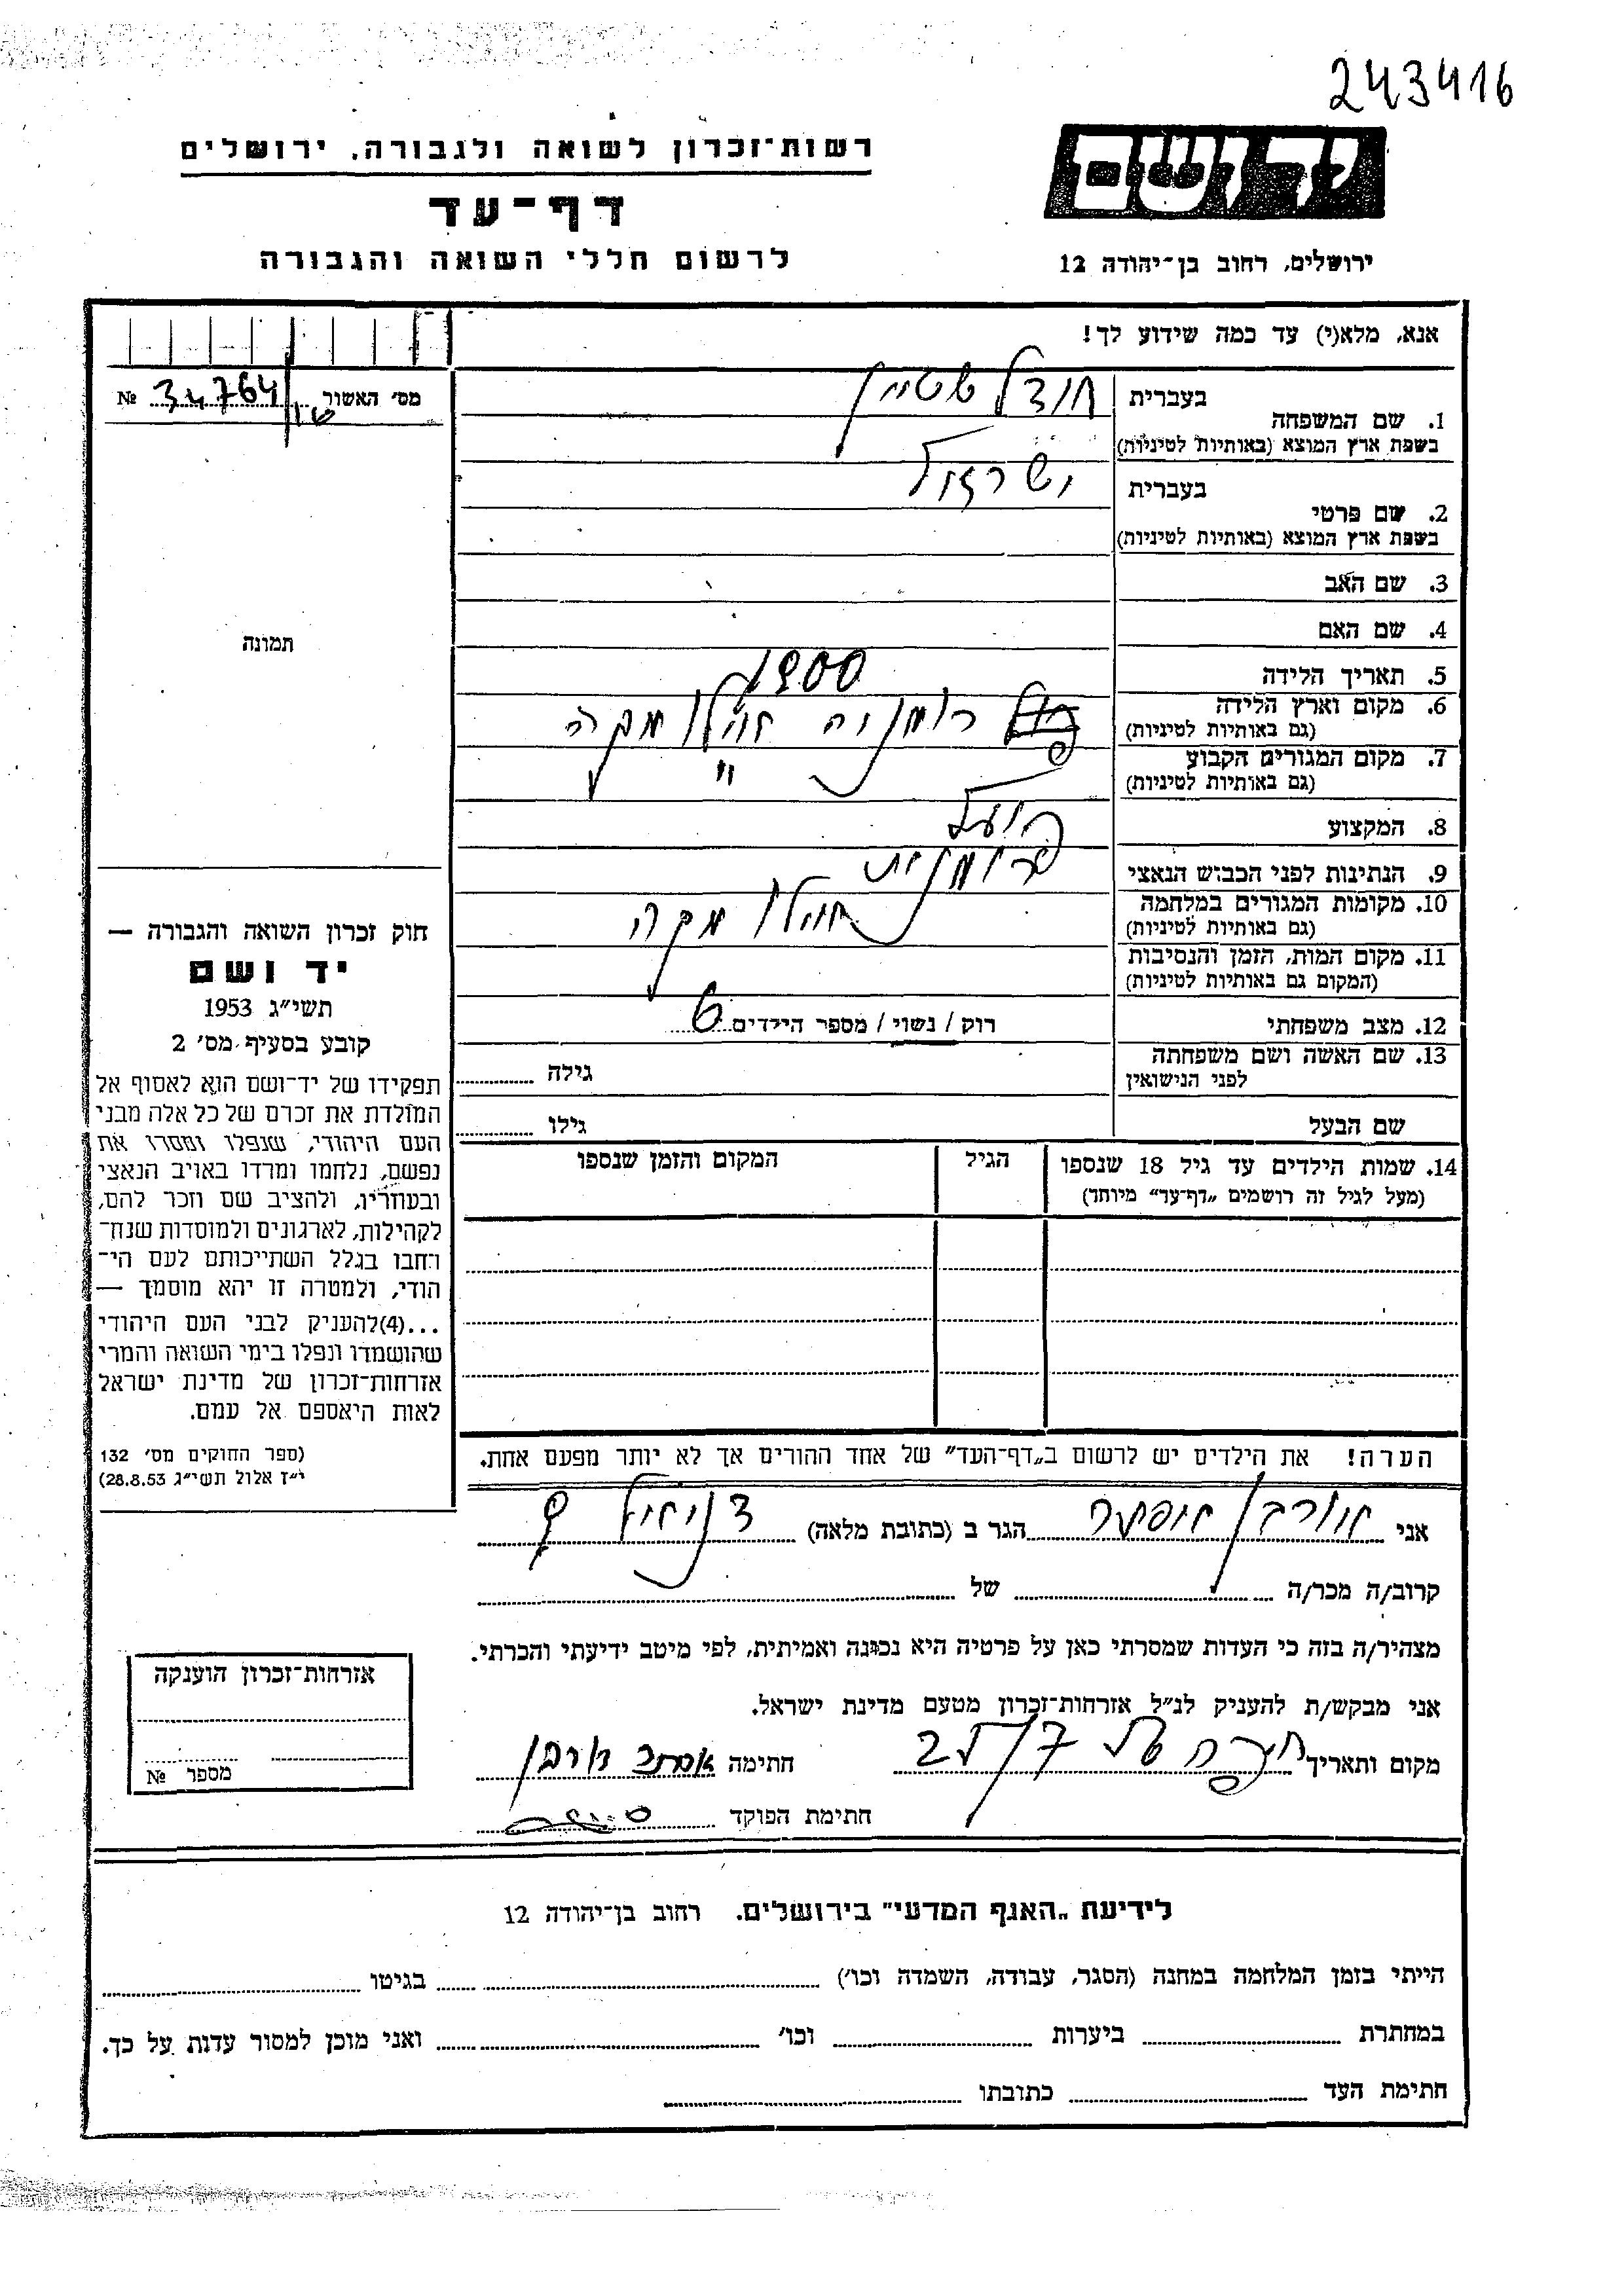 243416
יד ושם
רשות־זכרון לשואה ולגבורה, ירושלים
דף־עד
לרשום חללי השואה והגבורה
ירושלים, רחוב בן־יהודה 12
אנא, מלא(י) עד כמה שידוע לך!
מס׳ האשור 34764 №
בעברית
1. שם המשפחה
בשפת ארץ המוצא (באותיות לטיניות)
בעברית ישראל
2. שם פרטי
בשפת ארץ המוצא (באותיות לטיניות)
3. שם האב
4. שם האם
תמונה
5. תאריך הלידה 1900
6. מקום וארץ הלידה רומניה
(גם באותיות לטיניות)
7. מקום המגורים הקבוע "
(גם באותיות לטיניות)
8. המקצוע פועל
9. הנתינות לפני הכבוש הנאצי רומנית
10. מקומות המגורים במלחמה
(גם באותיות לטיניות)
11. מקום המות, הזמן והנסיבות
(המקום גם באותיות לטיניות)
12. מצב משפחתי רוק / נשוי / מספר הילדים 6
13. שם האשה ושם משפחתה
לפני הנישואין
גילה
שם הבעל גילו
14. שמות הילדים עד גיל 18 שנספו
(מעל לגיל זה רושמים „דף־עד״ מיוחד)
הגיל
המקום והזמן שנספו
חוק זכרון השואה והגבורה —
יד ושם
תשי״ג 1953
קובע בסעיף מס׳ 2
תפקידו של יד־ושם הוא לאסוף אל
המולדת את זכרם של כל אלה מבני
העם היהודי, שנפלו ומסרו את
נפשם, נלחמו ומרדו באויב הנאצי
ובעוזריו, ולהציב שם וזכר להם,
לקהילות, לארגונים ולמוסדות שנח־
רבו בגלל השתייכותם לעם הי־
הודי, ולמטרה זו יהא מוסמך —
...(4)להעניק לבני העם היהודי
שהושמדו ונפלו בימי השואה והמרי
אזרחות־זכרון של מדינת ישראל
לאות היאספם אל עמם.
(ספר החוקים מס׳ 132
י״ז אלול תשי״ג 28.8.53)
הערה! את הילדים יש לרשום ב„דף־העד״ של אחד ההורים אך לא יותר מפעם אחת.
אני הגר ב (כתובת מלאה)
קרוב/ה מכר/ה של
מצהיר/ה בזה כי העדות שמסרתי כאן על פרטיה היא נכונה ואמיתית, לפי מיטב ידיעתי והכרתי.
אני מבקש/ת להעניק לנ״ל אזרחות־זכרון מטעם מדינת ישראל.
מקום ותאריך חתימה
חתימת הפוקד
אזרחות־זכרון הוענקה
מספר №
לידיעת „האגף המדעי״ בירושלים. רחוב בן־יהודה 12
הייתי בזמן המלחמה במחנה (הסגר, עבודה, השמדה וכו׳) בגיטו
במחתרת ביערות וכו׳ ואני מוכן למסור עדות על כך.
חתימת העד כתובתו